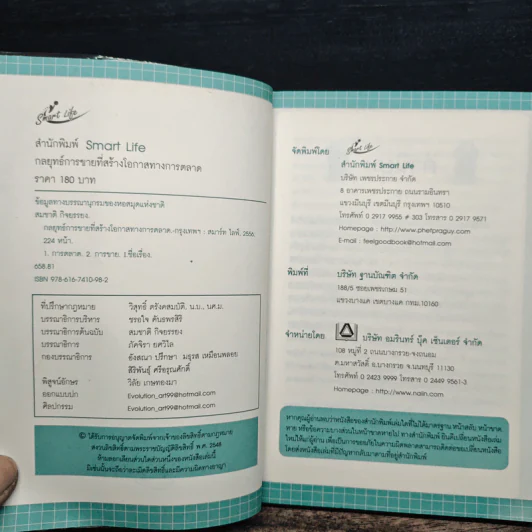 Smart Life
สำนักพิมพ์ Smart Life
กลยุทธ์การขายที่สร้างโอกาสทางการตลาด
ราคา 180 บาท
ข้อมูลทางบรรณานุกรมของหอสมุดแห่งชาติ
สมชาติ กิจยรรยง.
กลยุทธ์การขายที่สร้างโอกาสทางการตลาด.-กรุงเทพฯ : สมาร์ท ไลฟ์, 2556.
224 หน้า.
1. การตลาด. 2. การขาย. I.ชื่อเรื่อง.
658.81
ISBN 978-616-7410-98-2
ที่ปรึกษากฎหมาย วิสุทธิ์ ตรังคสมบัติ. น.บ., นศ.ม.
บรรณาธิการบริหาร ชรอใจ
บรรณาธิการต้นฉบับ สมชาติ กิจยรรยง
บรรณาธิการ ภัคจิรา ยศวิไล
กองบรรณาธิการ อังสณา ปรึกษา มธุรส เหมือนพลอย
สิริพันธุ์ ศรีอรุณศักดิ์
พิสูจน์อักษร วิลัย เกษทองมา
ออกแบบปก Evolution_art99@hotmail.com
ศิลปกรรม Evolution_art99@hotmail.com
© ได้รับการอนุญาตจัดพิมพ์จากเจ้าของลิขสิทธิ์ตามกฎหมาย
สงวนลิขสิทธิ์ตามพระราชบัญญัติลิขสิทธิ์ พ.ศ. 2548
ห้ามลอกเลียนส่วนใดส่วนหนึ่งของหนังสือเล่มนี้
มิเช่นนั้นจะถือว่าละเมิดลิขสิทธิ์และมีความผิดทางอาญา
Smart Life
จัดพิมพ์โดย
สำนักพิมพ์ Smart Life
บริษัท เพชรประกาย จำกัด
8 อาคารเพชรประกาย ถนนรามอินทรา
แขวงมีนบุรี เขตมีนบุรี กรุงเทพฯ 10510
โทรศัพท์ 0 2917 9955 # 303 โทรสาร 0 2917 9571
Homepage : http://www.phetpraguy.com
E-mail : feelgoodbook@hotmail.com
พิมพ์ที่ บริษัท ฐานบัณฑิต จำกัด
188/5 ซอยเพชรเกษม 51
แขวงบางแค เขตบางแค กทม.10160
จำหน่ายโดย บริษัท อมรินทร์ บุ๊ค เซ็นเตอร์ จำกัด
108 หมู่ที่ 2 ถนนบางกรวย-จงถนอม
ต.มหาสวัสดิ์ อ.บางกรวย จ.นนทบุรี 11130
โทรศัพท์ 0 2423 9999 โทรสาร 0 2449 9561-3
Homepage : http://www.naiin.com
หากคุณผู้อ่านพบว่าหนังสือของสำนักพิมพ์เล่มใดที่ไม่ได้มาตรฐาน หน้าสลับ หน้าขาด
หาย หรือข้อความบางส่วนในหน้าขาดหายไป ทางสำนักพิมพ์ ยินดีเปลี่ยนหนังสือเล่ม
ใหม่ให้แก่ผู้อ่าน เพื่อเป็นการขออภัยในความผิดพลาดสามารถติดต่อขอเปลี่ยนหนังสือ
โดยส่งหนังสือเล่มที่มีปัญหากลับมาตามที่อยู่สำนักพิมพ์